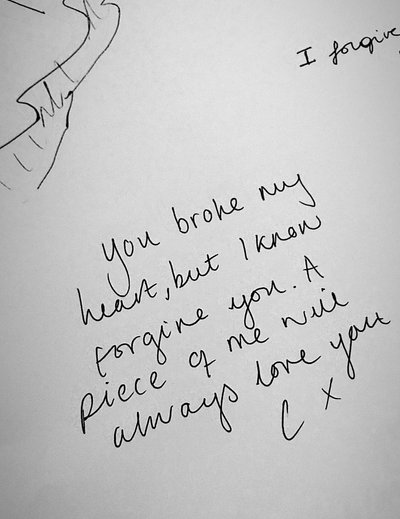 I forgive
You broke my
heart, but I know
forgive you. A
piece of me will
always love you
C x